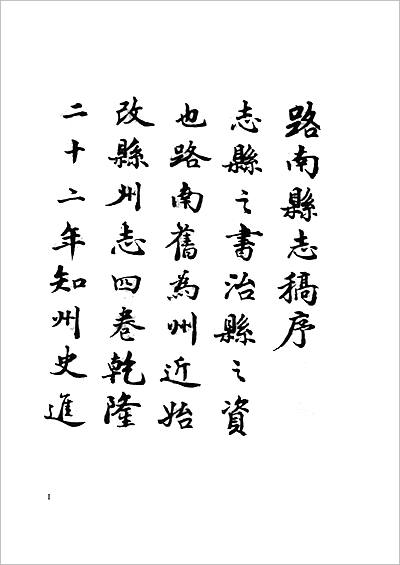 路南縣志稿序
志縣之書治縣之資
也路南舊為州近始
改縣州志四卷乾隆
二十二年知州史進
I